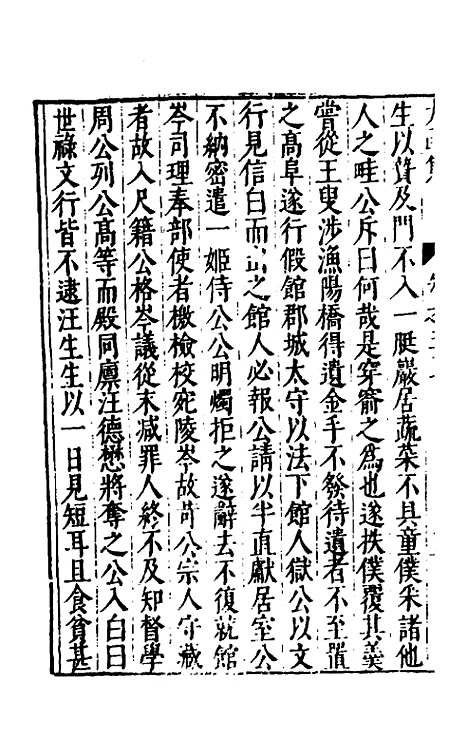 生以贄及門不入一艇嚴居蔬菜不具童僕采諸他
人之畦公斥曰何哉是穿窬之爲也遂抶僕覆其羹
嘗從王叟涉漁陽橋得遺金手不發待遺者不至置
之高阜遂行假館郡城太守以法下館人獄公以文
行見信白而出之館人必報公請以半直獻居室公
不納密遣一姬侍公公明燭拒之遂辭去不復就館
岑司理奉部使者檄檢校宛陵岑故苛公宗人守藏
者故入尺籍公格岑議從末減罪人終不及知督學
周公列公高等而殿同廪汪德懋將奪之公入白曰
世祿文行皆不逮汪生生以一日見短耳且食貧甚